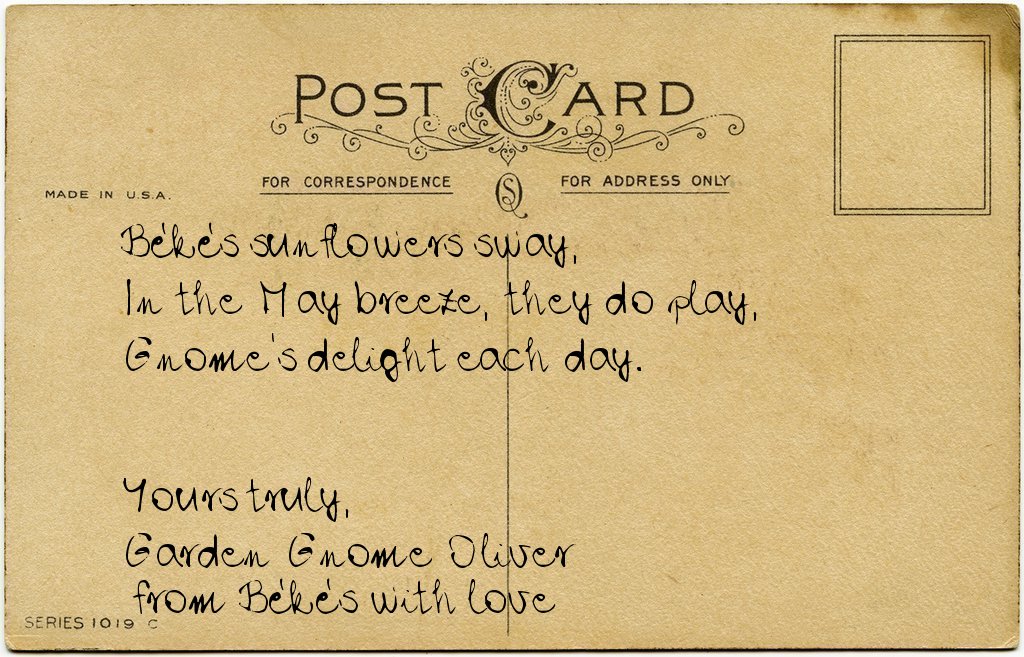 POST CARD
FOR CORRESPONDENCE
FOR ADDRESS ONLY
MADE IN U.S.A.
Békés sunflowers sway,
In the May breeze, they do play,
Gnome's delight each day.
Yours truly,
Garden Gnome Oliver
from Békés with love
SERIES 1019 C